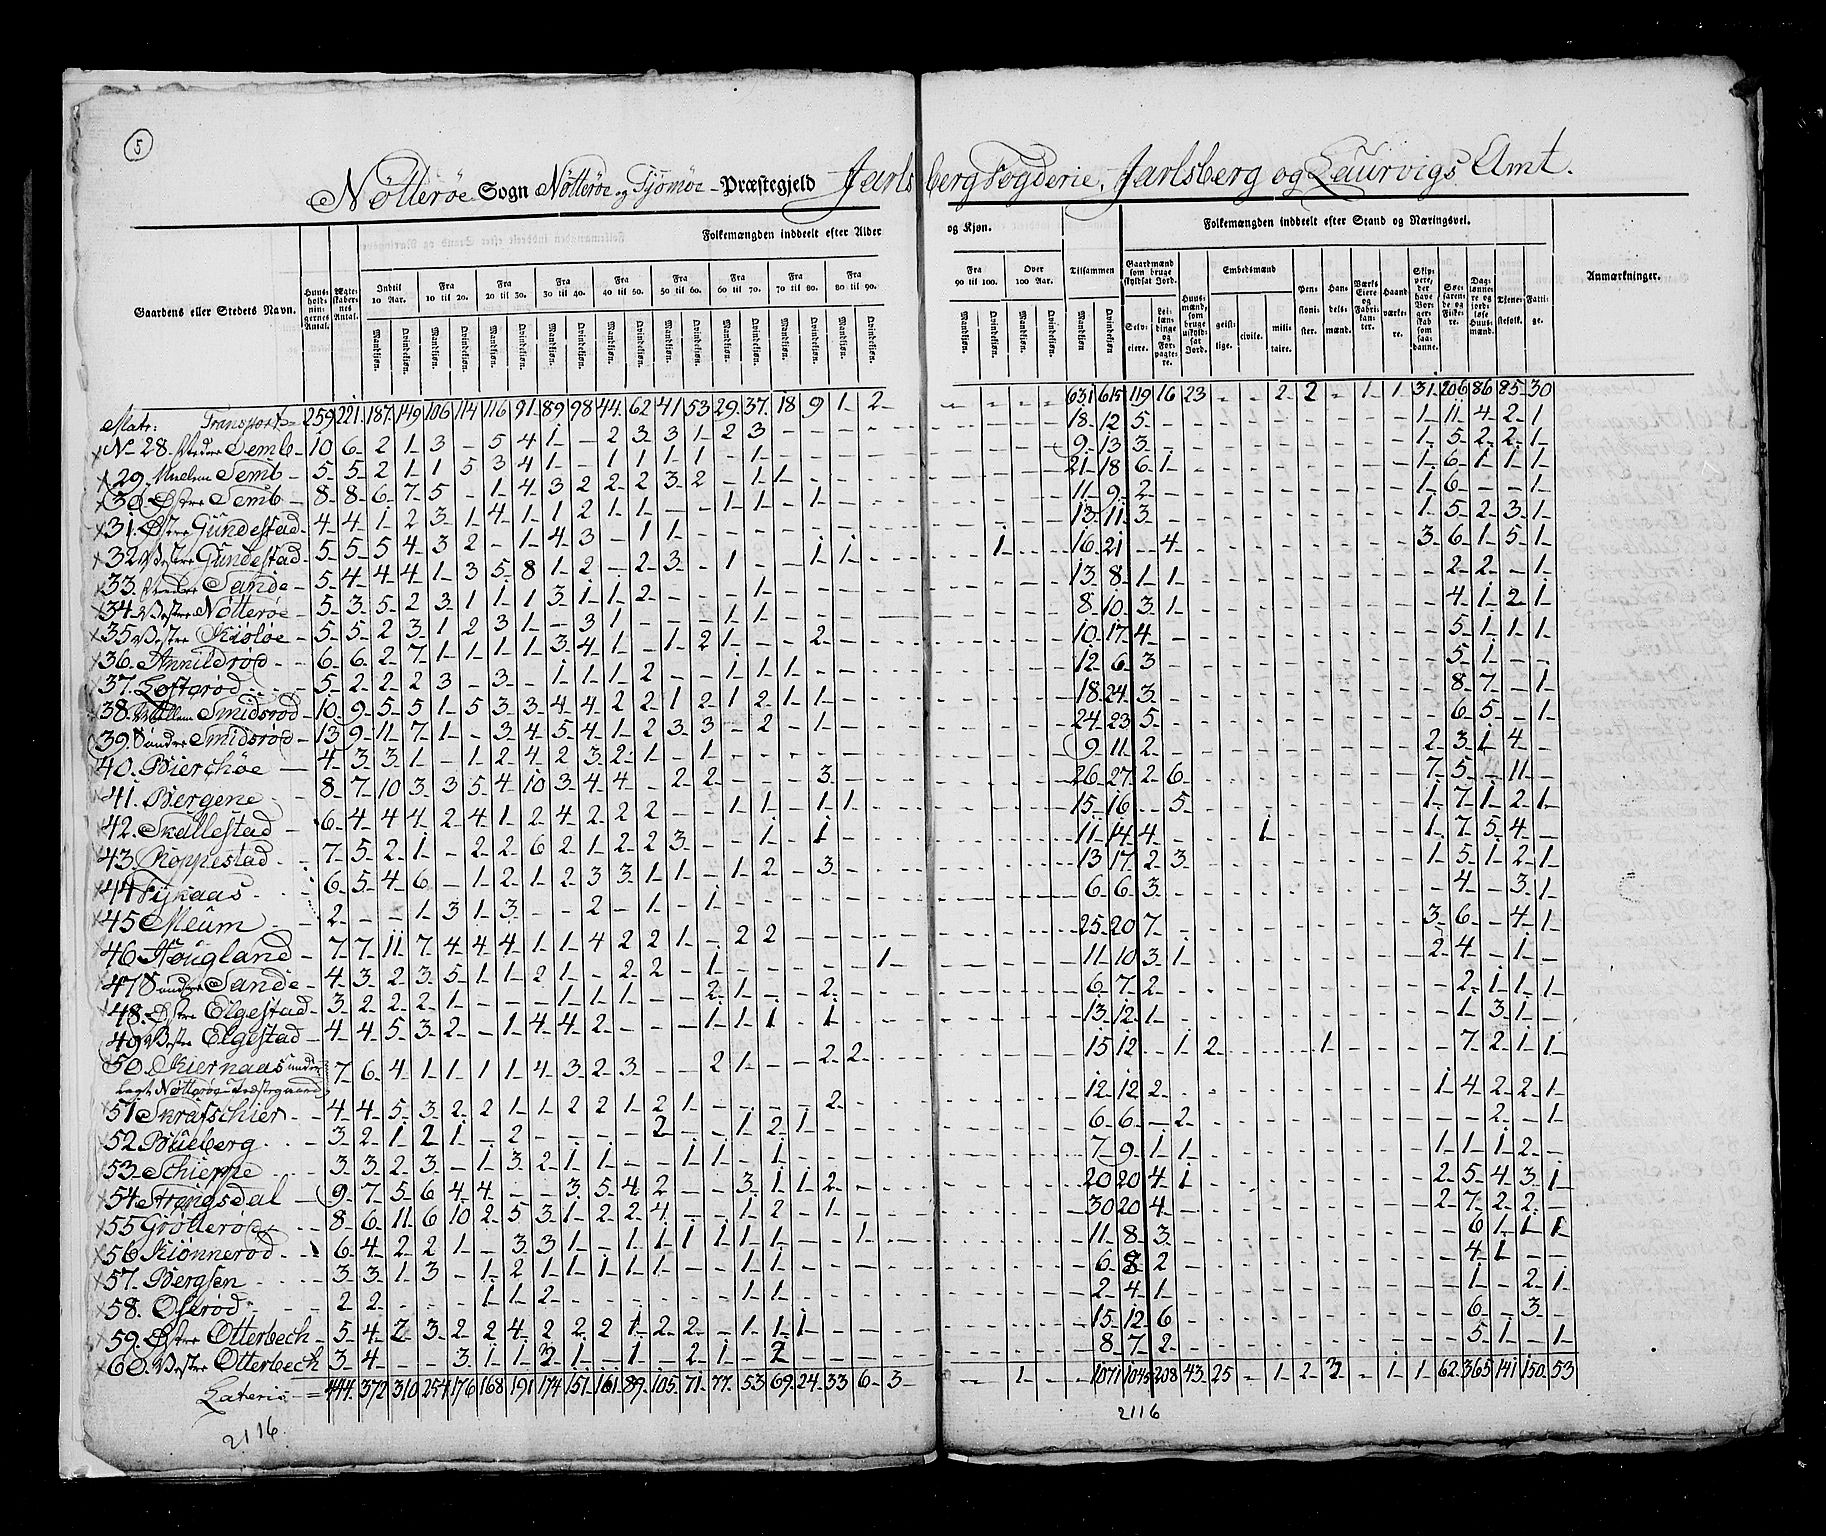 5
Nötterøe Sogn Nötterøe og Tjömöe Præstegjeld Jarlsberg Fogderie, Jarlsberg og Laurvigs Amt.
Folkemængden inddeelt efter Alder og Kjøn. Folkemængden inddeelt efter Stand og Næringsvei.
Gaardens eller Stedets Navn. Huusholdningernes Antal. Ægteskabernes Antal. Indtil 10 Aar. Fra 10 til 20. Fra 20 til 30. Fra 30 til 40. Fra 40 til 50. Fra 50 til 60. Fra 60 til 70. Fra 70 til 80. Fra 80 til 90. Fra 90 til 100. Over 100 Aar. Tilsammen Gaardmænd som bruge skyldsat Jord. Huusmænd, som bruge uskyldsat Jord. Embedsmænd Pensionister. Handelsmænd. Værks Eiere og Fabrikanter. Haandværkere. Skippere, der have Borgerskab som saadanne. Søefarende og Fiskere. Daglønnere og jordløse Huusmænd. Tjenestefolk. Fattige. Anmærkninger.
Mandkiøn. Qvindekiøn. Selveiere. Leilændinge og Forpagtere. geistlige. civile. militaire.
Matr: Transport 259 221 187 149 106 114 116 91 89 98 44 62 41 53 29 37 18 9 1 2 631 615 119 16 23 2 2 1 1 31 206 86 85 30
No 28. Nedre Semb 10 6 2 1 3 - 5 4 1 - 2 3 3 1 2 3 18 12 5 1 11 4 2 1
29. Semb 5 5 2 1 1 5 3 4 1 - 1 1 1 1 - 1 9 13 3 1 5 2 2 1
30. Østre Semb 8 8 6 7 5 - 1 4 3 2 2 2 3 2 - 1 1 21 18 6 1 1 6 1 1 1
31. Østre Gundestad 4 4 1 2 3 1 4 1 1 2 1 1 - - 1 1 - 1 11 9 2 1 6 - - 1
32. Vestre Gundestad 5 5 5 4 3 2 - 1 4 3 - 1 1 13 11 3 1 5 2 3 1
33. Nedre Sande 5 4 4 4 1 3 5 8 1 2 - 2 3 - 1 - - 1 1 1 16 21 - 4 3 6 1 5 1
34. Vestre Nötterøe 5 3 5 2 3 1 1 1 3 1 1 2 - - - 1 13 8 1 1 2 2 - 1
35. Vestre Kioløe 5 5 2 3 1 2 3 1 - 3 1 - - - 1 1 8 10 3 1 4 1 2 1
36. Annildrød 6 6 2 7 1 1 1 1 3 4 1 - 1 2 1 - - 2 10 17 4 5 1 1 1
37. Loftsrød 5 2 2 2 3 - 3 - 1 1 1 2 - - 1 1 1 12 6 3 5 1 - -
38. Smidsrød 10 9 5 5 1 5 3 3 4 4 2 2 1 2 1 2 1 1 18 24 3 8 7 - 1
39. Søndre Smidsrød 13 9 11 7 1 - 3 4 5 4 1 2 3 3 - 2 - 1 24 23 5 6 5 - 1
40. Bierchøe 4 3 3 1 - 1 2 4 2 3 2 1 - 1 9 11 2 2 3 1 4 -
41. Bergene 8 7 10 3 3 5 4 10 3 4 4 - 2 2 - - - 3 26 27 2 6 7 5 - 11 -
42. Skallestad 6 4 4 4 2 4 1 2 4 2 2 2 - - 1 1 - 1 1 15 16 - 5 1 7 1 2 1
43. Roppestad 7 5 2 1 - 2 2 6 2 1 2 2 3 - - 1 - 1 11 14 4 1 1 7 5 4 -
44. Fykaas 6 5 4 6 - 1 2 1 2 3 3 1 1 - 1 2 - 3 13 17 2 3 1 5 1 2 1
45. Meum 2 - - 1 3 1 3 - - 2 - 1 - 1 6 6 3 4 - 3 1
46. Hougland 7 7 11 7 4 4 4 1 1 4 2 2 1 - 2 2 25 20 7 3 6 - 4 1
47. Søndre Sande 4 3 2 3 5 1 1 2 1 - 2 2 - 1 1 11 10 3 1 2 4 - 1 -
48. Østre Elgestad 3 2 2 2 1 - - - 1 1 1 - - 2 1 - - 2 6 7 2 2 1 1 1
49. Vestre Elgestad 4 4 5 3 2 - 1 4 4 2 - - - 1 1 1 - 1 13 12 1 1 3 1 -
50. Kiernaas under- 7 6 4 1 1 1 1 4 3 2 3 - - 2 1 - - 2 2 15 12 - 1 2 1 7 2 1 1
lagt Nötterøe Præstegaard
51. Skrafschier 4 4 5 3 2 2 1 1 2 2 1 2 1 - - - - 2 12 12 2 1 4 2 2 1
52. Bueberg 3 2 1 2 1 - 2 - - - - 2 - - 1 2 1 6 6 - 2 2 - 1
53. Schierpe 3 3 2 3 - 1 3 2 1 1 - - 1 1 - 1 7 9 1 1 1 1 1 2 -
54. Strengsdal 9 7 5 6 4 4 - - 3 5 4 2 - - 3 1 1 2 20 20 4 1 2 5 4 3 1
55. Grötterød 8 6 11 6 10 2 5 3 1 2 2 4 - - 1 2 - 1 30 20 4 2 7 2 2 -
56. Kiönnerød 6 4 2 2 1 - 3 3 1 - 1 1 1 1 1 1 - - 1 11 8 3 6 1 1 1
57. Bergsen 3 3 1 3 - 1 2 1 1 1 1 1 - - 1 1 6 8 2 4 1 - -
58. Oserød 2 2 - - - 1 1 2 - - - - - - 1 1 2 4 1 1 - 2 1
59. Østre Otterbech 5 4 2 3 2 2 4 2 2 2 1 2 2 - 1 1 1 15 12 6 6 - 3 -
60. Vestre Otterbech 3 4 - - 3 1 1 2 1 - 1 - 2 1 - 2 8 7 2 5 1 - 1
Lateris 444 372 310 254 176 168 191 174 151 161 89 105 71 77 53 69 24 33 6 3 1 1071 1045 208 43 25 1 2 2 1 1 62 365 141 150 53
2116 2116